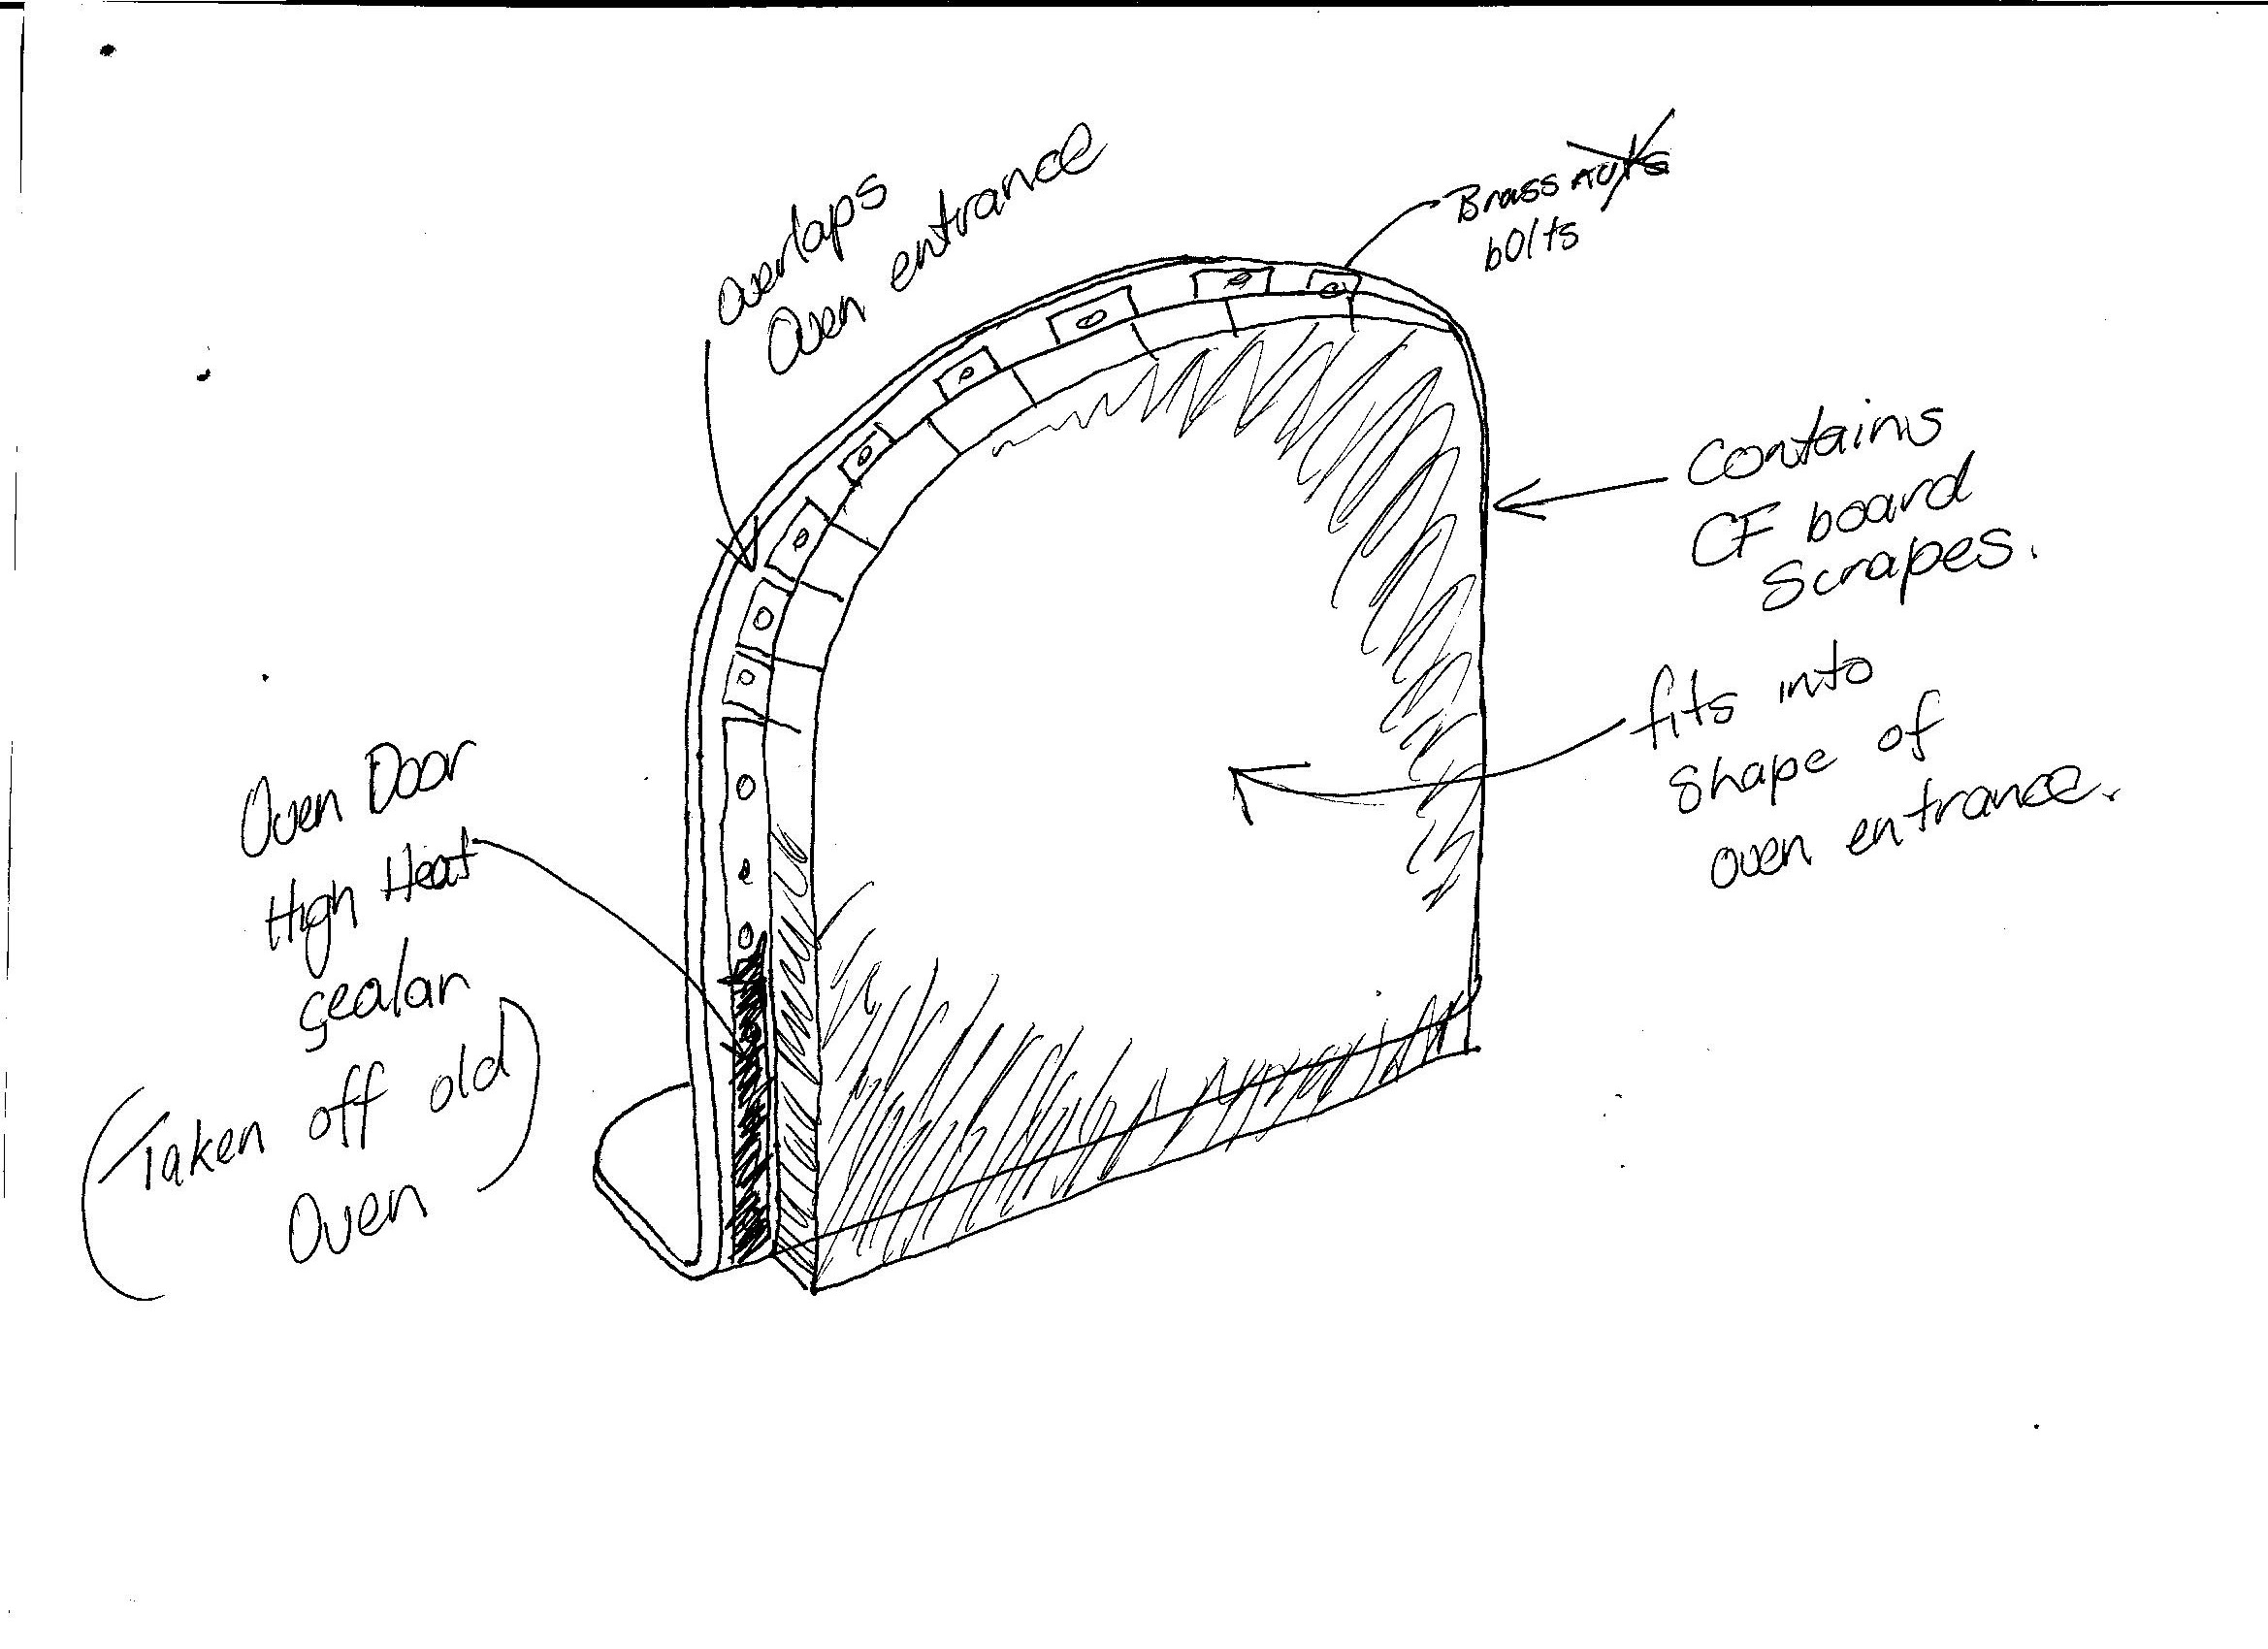 overlaps
Oven entrance
Brass nuts
bolts
Contains
CF board
Scrapes.
fits into
shape of
oven entrance.
Oven Door
High Heat
sealar
(Taken off old
Oven)